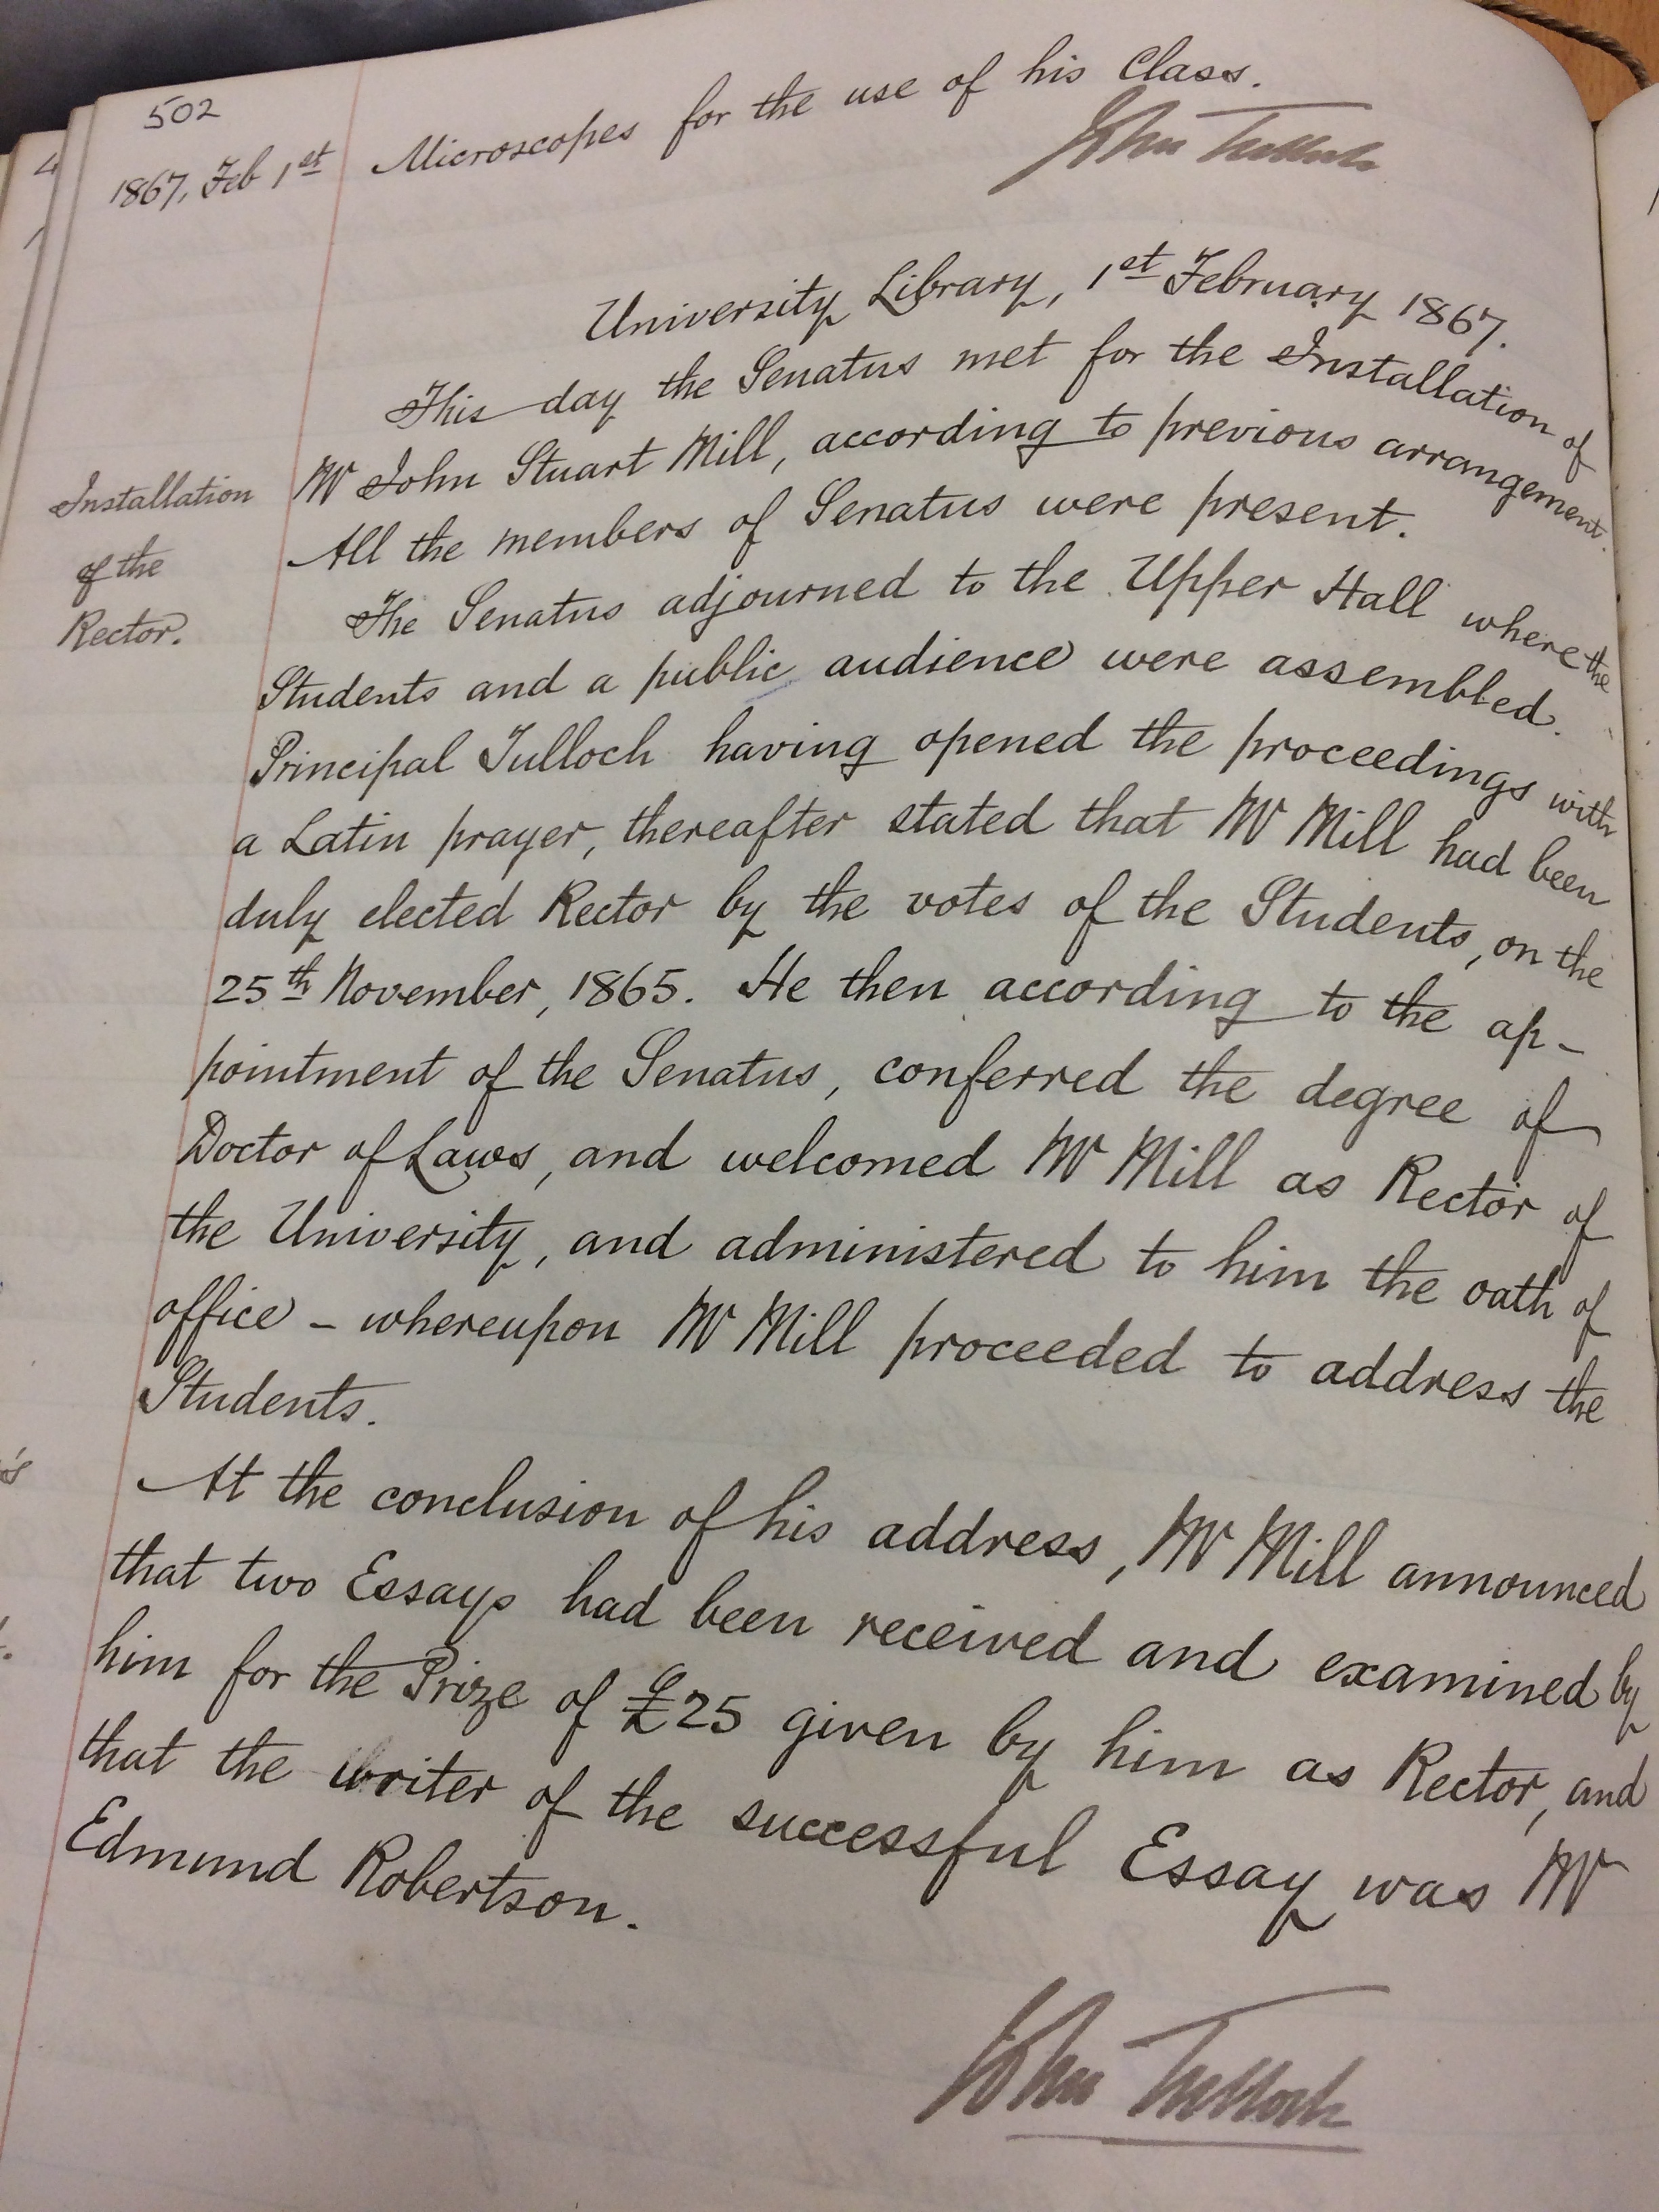 502
1867, Feb 1st
Microscopes for the use of his Class.
John Tulloch
University Library, 1st February 1867.
This day the Senatus met for the Installation of
Mr John Stuart Mill, according to previous arrangement.
All the members of Senatus were present.
Installation
of the
Rector.
The Senatus adjourned to the Upper Hall where the
Students and a public audience were assembled.
Principal Tulloch having opened the proceedings with
a Latin prayer, thereafter stated that Mr Mill had been
duly elected Rector by the votes of the Students, on the
25th November, 1865. He then according to the ap-
pointment of the Senatus, conferred the degree of
Doctor of Laws, and welcomed Mr Mill as Rector of
the University, and administered to him the oath of
office - whereupon Mr Mill proceeded to address the
Students.
At the conclusion of his address, Mr Mill announced
that two Essays had been received and examined by
him for the Prize of £25 given by him as Rector, and
that the writer of the successful Essay was Mr
Edmund Robertson.
John Tulloch